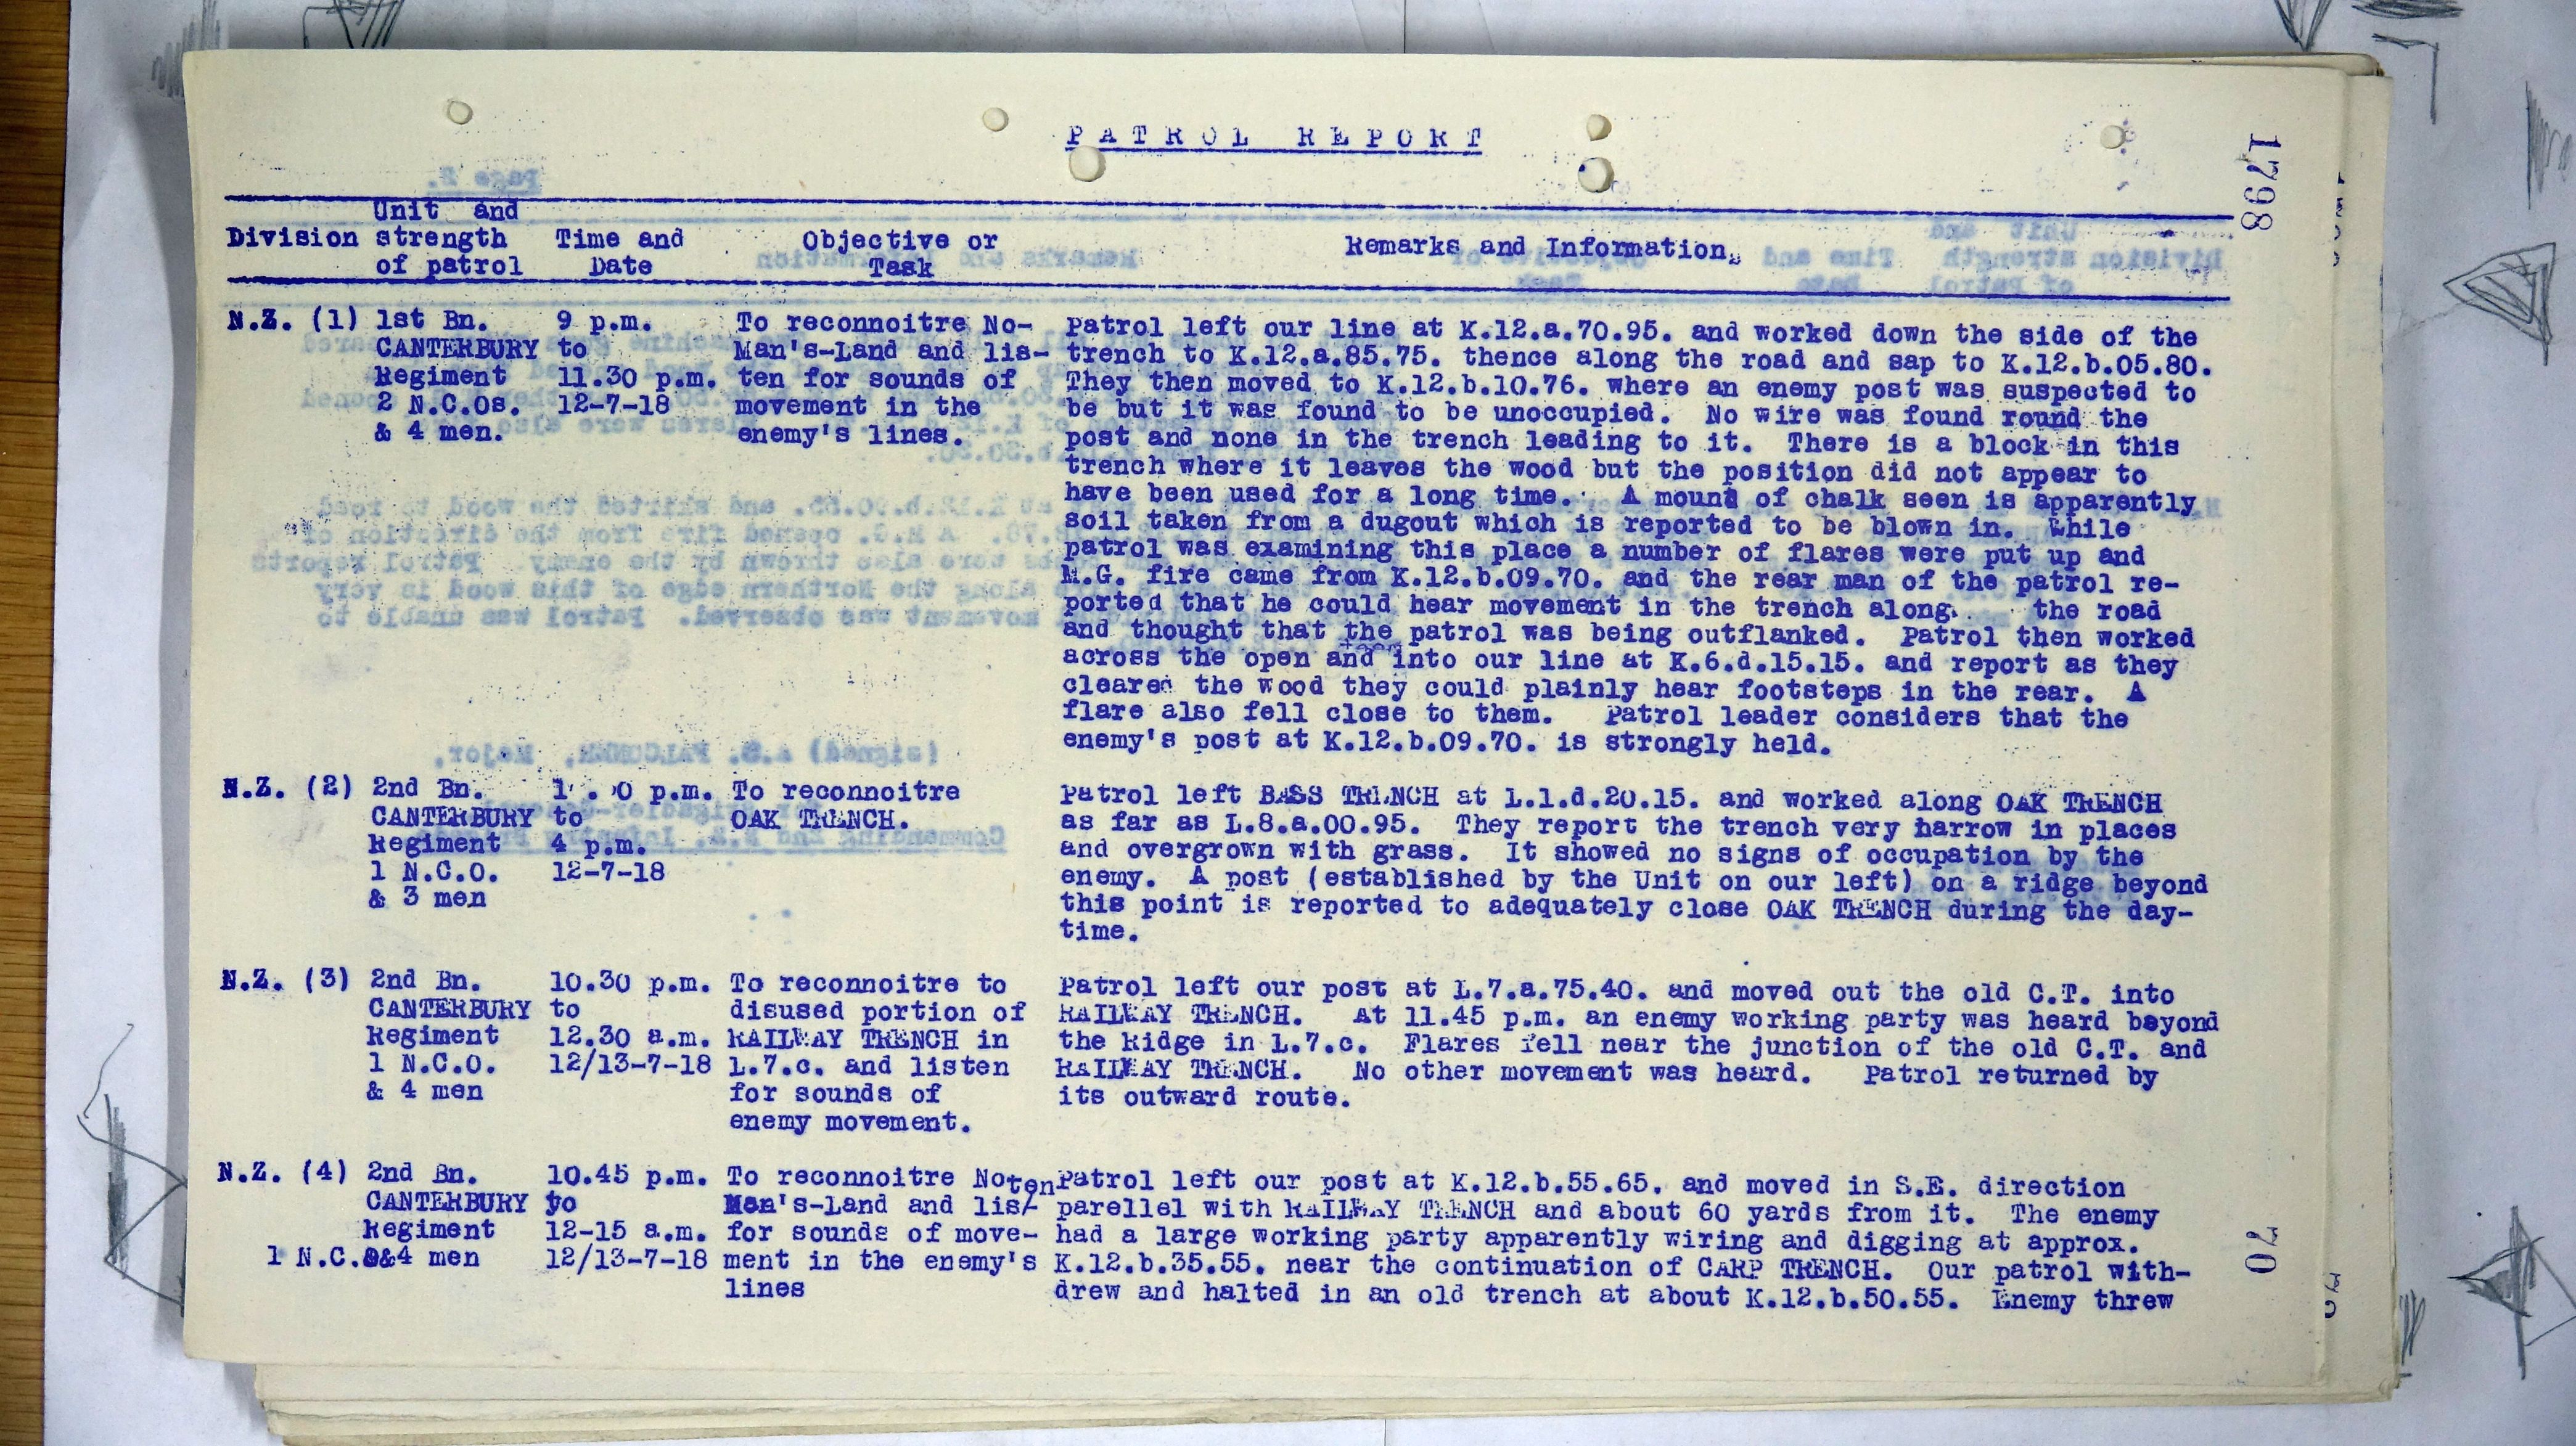 PATROL REPORT
Unit and
Division strength Time and Objective or Remarks and Information.
of patrol Date Task
N.Z. (1) 1st Bn. 9 p.m. To reconnoitre No- Patrol left our line at K.12.a.70.95. and worked down the side of the
CANTERBURY to Man's-Land and lis- trench to K.12.a.85.75. thence along the road and sap to K.12.b.05.80.
Regiment 11.30 p.m. ten for sounds of They then moved to K.12.b.10.76. where an enemy post was suspected to
2 N.C.Os. 12-7-18 movement in the be but it was found to be unoccupied. No wire was found round the
& 4 men. enemy's lines. post and none in the trench leading to it. There is a block in this
trench where it leaves the wood but the position did not appear to
have been used for a long time. A mound of chalk seen is apparently
soil taken from a dugout which is reported to be blown in. While
patrol was examining this place a number of flares were put up and
M.G. fire came from K.12.b.09.70. and the rear man of the patrol re-
ported that he could hear movement in the trench along. the road
and thought that the patrol was being outflanked. Patrol then worked
across the open and into our line at K.6.d.15.15. and report as they
cleared the wood they could plainly hear footsteps in the rear. A
flare also fell close to them. Patrol leader considers that the
enemy's post at K.12.b.09.70. is strongly held.
N.Z. (2) 2nd Bn. p.m. To reconnoitre Patrol left BASS TRENCH at L.1.d.20.15. and worked along OAK TRENCH
CANTERBURY to OAK TRENCH. as far as L.8.a.00.95. They report the trench very harrow in places
Regiment 4 p.m. and overgrown with grass. It showed no signs of occupation by the
1 N.C.O. 12-7-18 enemy. A post (established by the Unit on our left) on a ridge beyond
& 3 men this point is reported to adequately close OAK TRENCH during the day-
time.
N.Z. (3) 2nd Bn. 10.30 p.m. To reconnoitre to Patrol left our post at L.7.a.75.40. and moved out the old C.T. into
CANTERBURY to disused portion of RAILWAY TRENCH. At 11.45 p.m. an enemy working party was heard beyond
Regiment 12.30 a.m. RAILWAY TRENCH in the Ridge in L.7.c. Flares fell near the junction of the old C.T. and
1 N.C.O. 12/13-7-18 L.7.c. and listen RAILWAY TRENCH. No other movement was heard. Patrol returned by
& 4 men for sounds of its outward route.
enemy movement.
N.Z. (4) 2nd Bn. 10.45 p.m. To reconnoitre No Patrol left our post at K.12.b.55.65. and moved in S.E. direction
CANTERBURY to Man's-Land and lis/ten parellel with RAILWAY TRENCH and about 60 yards from it. The enemy
Regiment 12-15 a.m. for sounds of move- had a large working party apparently wiring and digging at approx.
1 N.C.O&4 men 12/13-7-18 ment in the enemy's K.12.b.35.55. near the continuation of CARP TRENCH. Our patrol with-
lines drew and halted in an old trench at about K.12.b.50.55. Enemy threw
1798
70